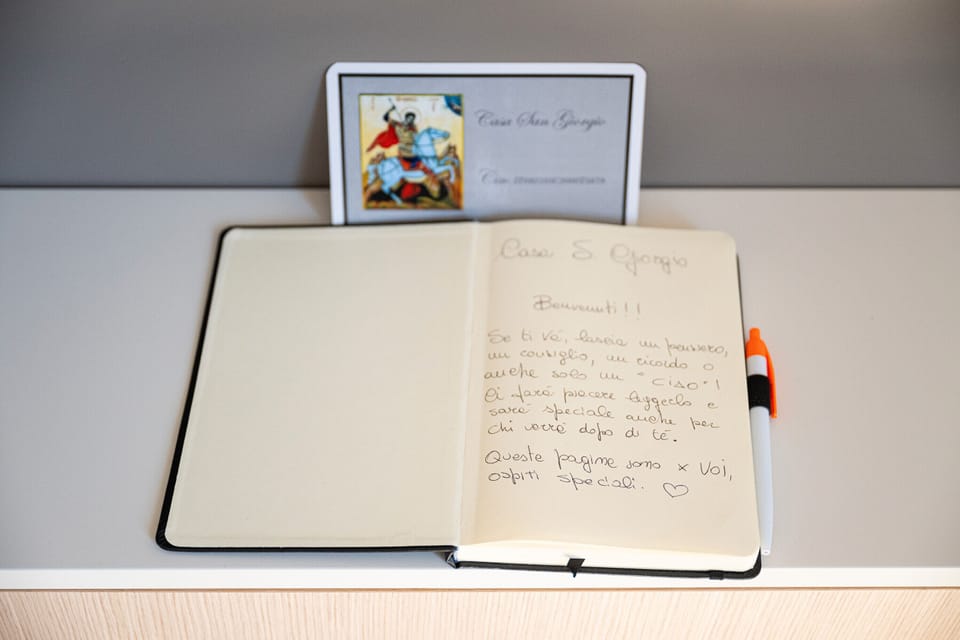 Casa San Giorgio
Casa S. Giorgio
Benvenuti!!
Se ti và, lascia un pensiero,
un consiglio, un ricordo o
anche solo un "ciao"!
Ci farà piacere leggerlo e
sarà speciale anche per
chi verrà dopo di té.
Queste pagine sono x Voi,
ospiti speciali. ♡